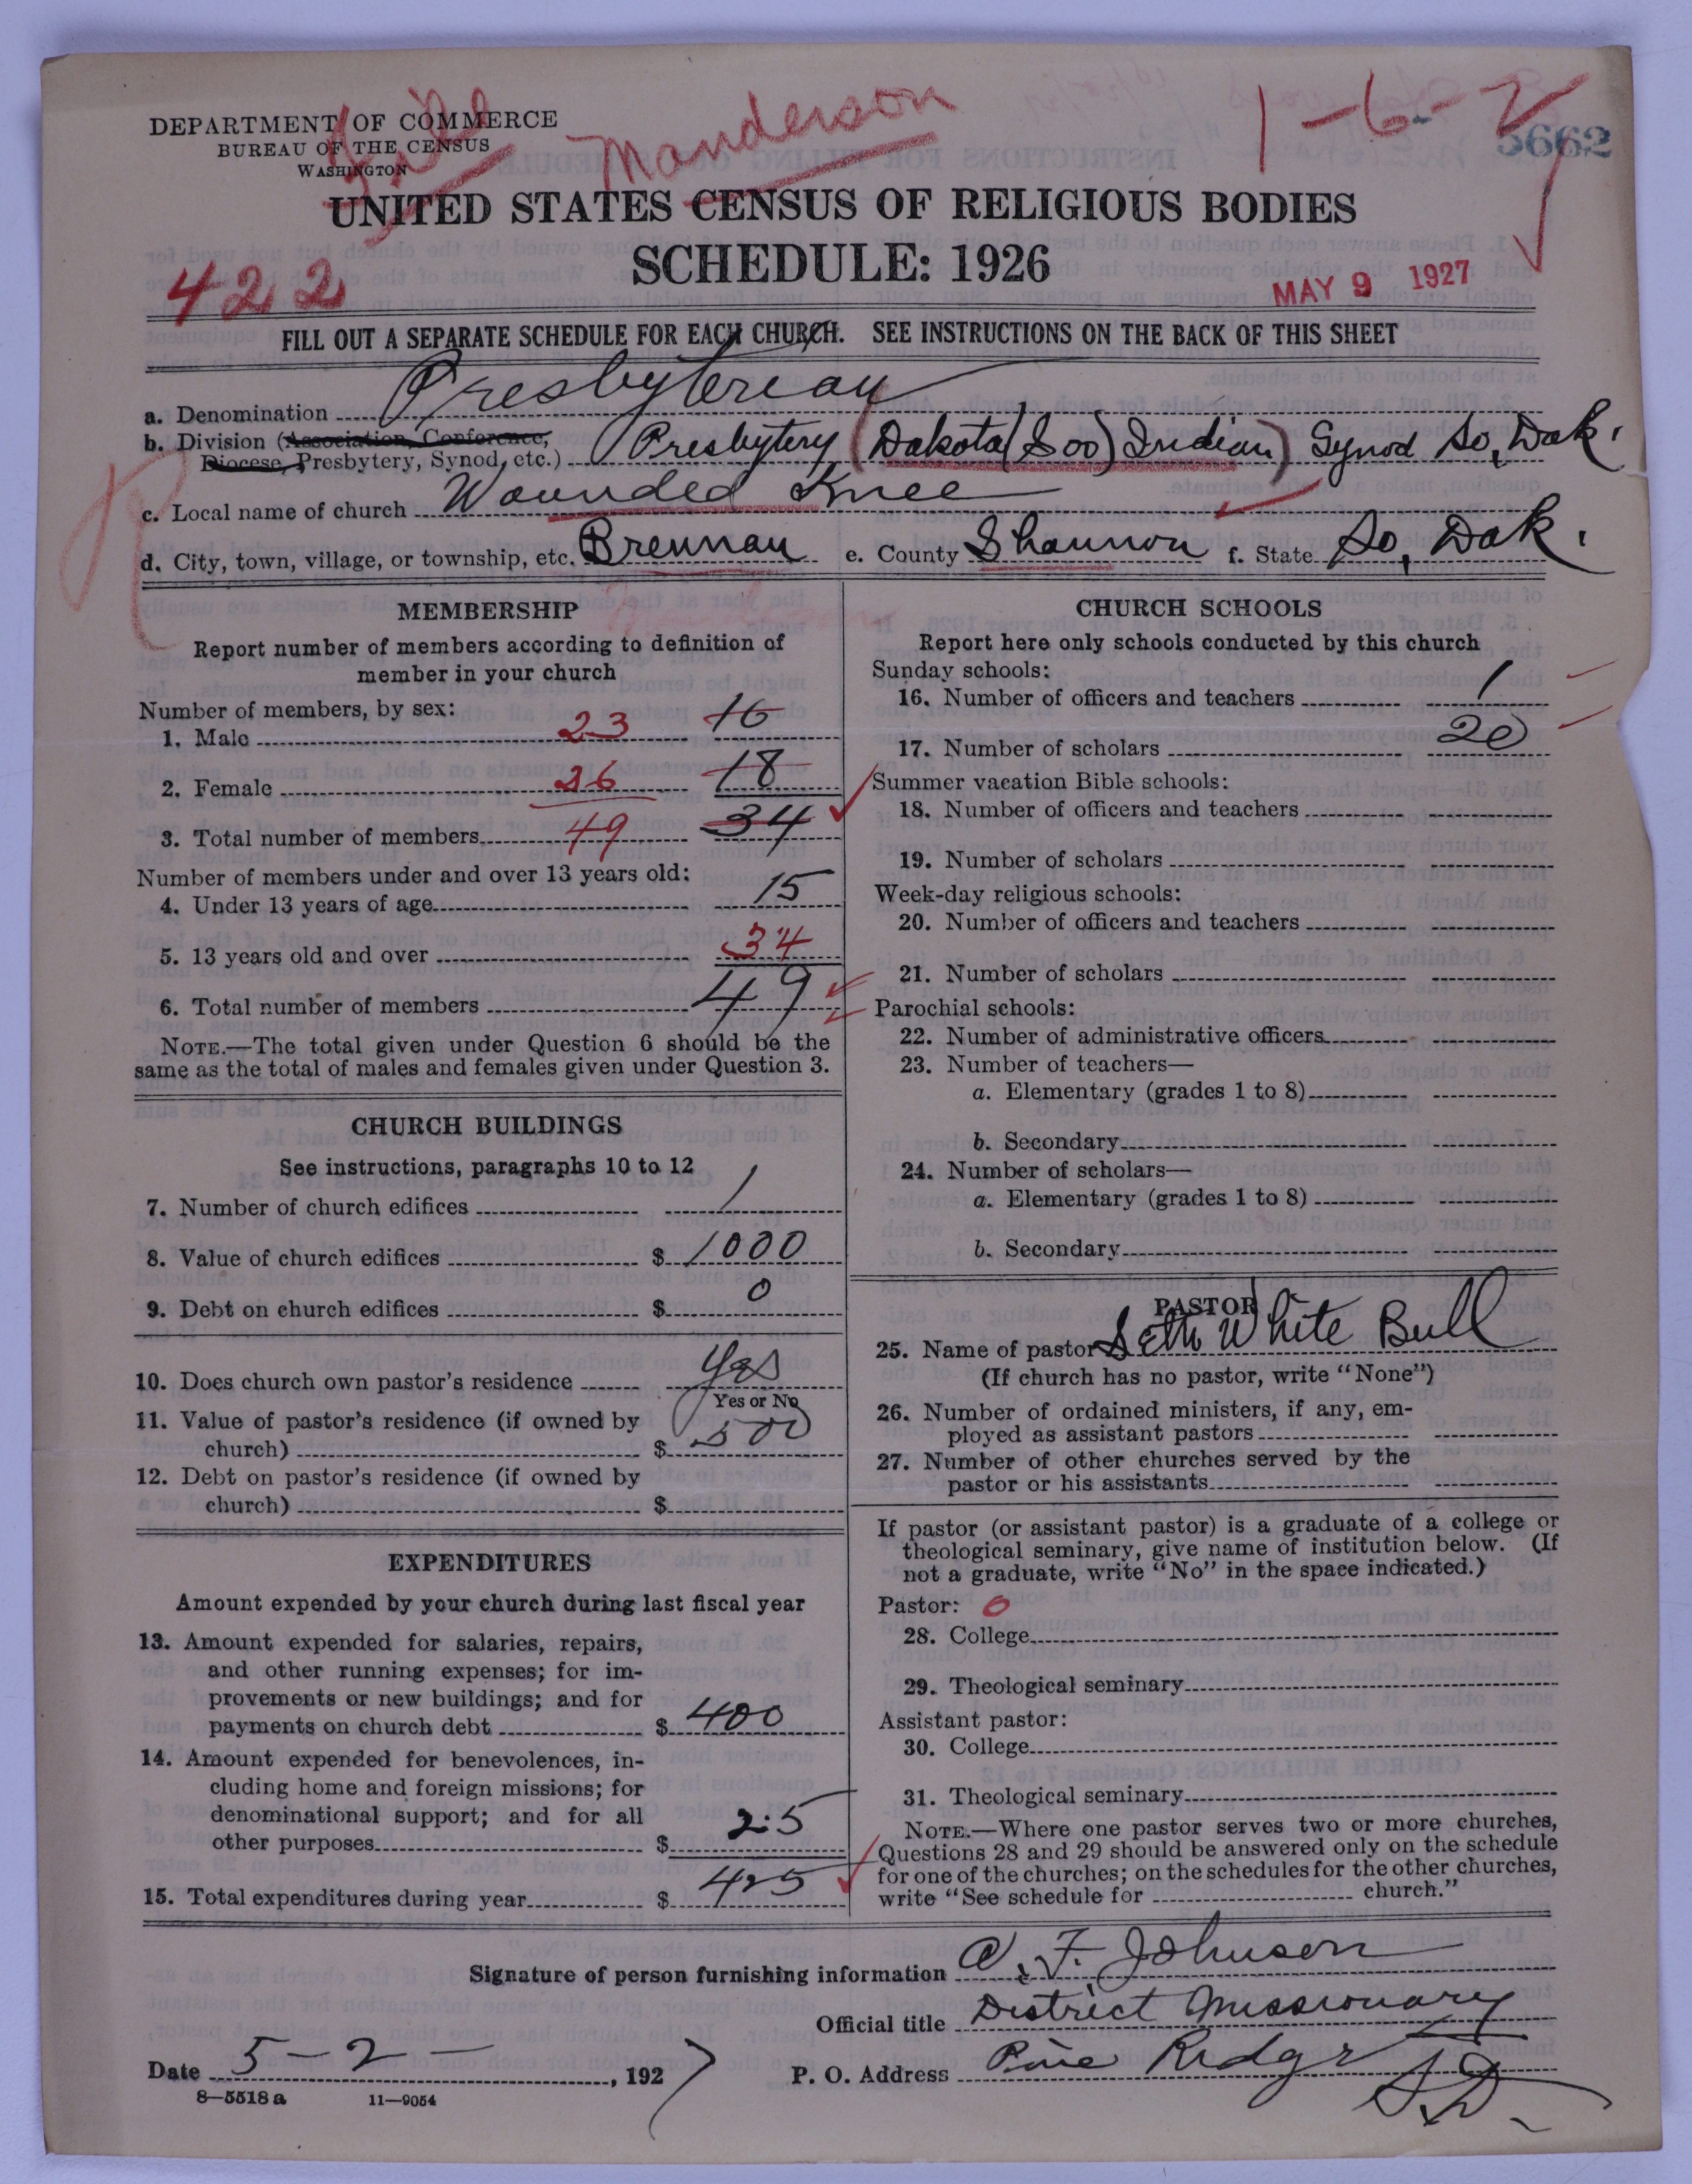 DEPARTMENT OF COMMERCE
BUREAU OF THE CENSUS
WASHINGTON
Manderson
1-6-2
5662
UNITED STATES CENSUS OF RELIGIOUS BODIES
SCHEDULE: 1926
422
MAY 9 1927
FILL OUT A SEPARATE SCHEDULE FOR EACH CHURCH. SEE INSTRUCTIONS ON THE BACK OF THIS SHEET
a. Denomination Presbyterian
b. Division (Association, Conference,
Diocese, Presbytery, Synod, etc.) Presbytery (Dakota (Soo) Indian) Synod So. Dak.
c. Local name of church Wounded Knee
d. City, town, village, or township, etc. Brennan e. County Shannon f. State So. Dak.
MEMBERSHIP
Report number of members according to definition of
member in your church
Number of members, by sex:
1. Male 23 16
2. Female 26 18
3. Total number of members 49 34
Number of members under and over 13 years old:
4. Under 13 years of age 15
5. 13 years old and over 34
6. Total number of members 49
NOTE.—The total given under Question 6 should be the
same as the total of males and females given under Question 3.
CHURCH BUILDINGS
See instructions, paragraphs 10 to 12
7. Number of church edifices 1
8. Value of church edifices $ 1000
9. Debt on church edifices $ 0
10. Does church own pastor's residence Yes
Yes or No
11. Value of pastor's residence (if owned by
church) $ 500
12. Debt on pastor's residence (if owned by
church) $
EXPENDITURES
Amount expended by your church during last fiscal year
13. Amount expended for salaries, repairs,
and other running expenses; for im-
provements or new buildings; and for
payments on church debt $ 400
14. Amount expended for benevolences, in-
cluding home and foreign missions; for
denominational support; and for all
other purposes $ 25
15. Total expenditures during year $ 425
CHURCH SCHOOLS
Report here only schools conducted by this church
Sunday schools:
16. Number of officers and teachers 1
17. Number of scholars 20
Summer vacation Bible schools:
18. Number of officers and teachers
19. Number of scholars
Week-day religious schools:
20. Number of officers and teachers
21. Number of scholars
Parochial schools:
22. Number of administrative officers
23. Number of teachers—
a. Elementary (grades 1 to 8)
b. Secondary
24. Number of scholars—
a. Elementary (grades 1 to 8)
b. Secondary
PASTOR
25. Name of pastor Seth White Bull
(If church has no pastor, write "None")
26. Number of ordained ministers, if any, em-
ployed as assistant pastors
27. Number of other churches served by the
pastor or his assistants
If pastor (or assistant pastor) is a graduate of a college or
theological seminary, give name of institution below. (If
not a graduate, write "No" in the space indicated.)
Pastor: 0
28. College
29. Theological seminary
Assistant pastor:
30. College
31. Theological seminary
NOTE.—Where one pastor serves two or more churches,
Questions 28 and 29 should be answered only on the schedule
for one of the churches; on the schedules for the other churches,
write "See schedule for church."
Signature of person furnishing information A. F. Johnson
Official title District Missionary
Date 5-2-, 1927 P. O. Address Pine Ridge
S.D.
8—5518 a 11—9054